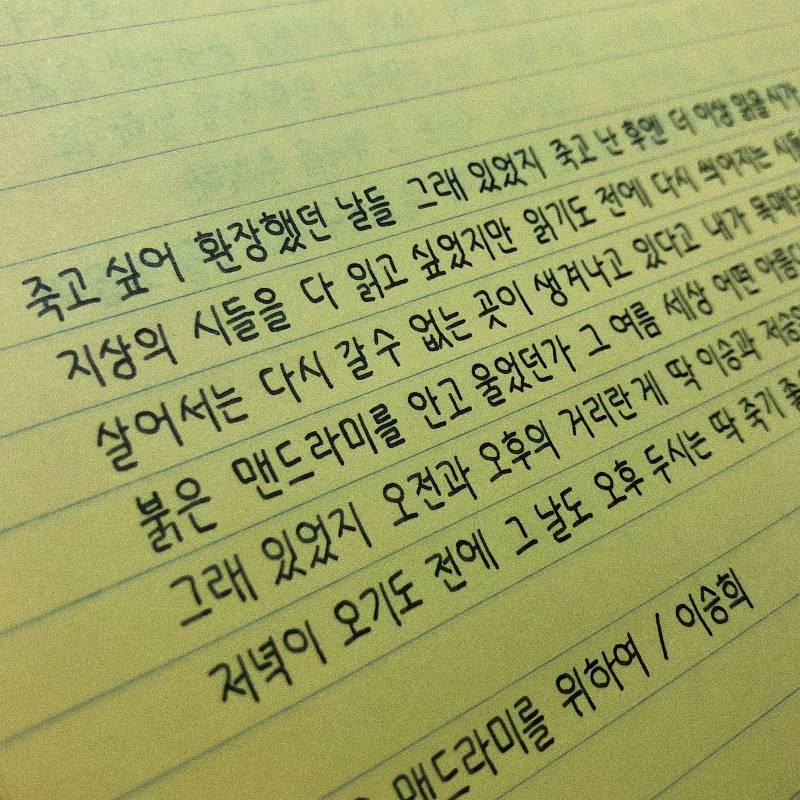 죽고 싶어 환장했던 날들 그래 있었지 죽고 난 후엔 더 이상 읽을 시가
지상의 시들을 다 읽고 싶었지만 읽기도 전에 다시 씌어지는 시들
살아서는 다시 갈 수 없는 곳이 생겨나고 있다고 내가
붉은 맨드라미를 안고 울었던가 그 여름 세상 어떤
그래 있었지 오전과 오후의 거리란 게 딱 이승과
저녁이 오기도 전에 그 날도 오후 두시는 딱 죽기
맨드라미를 위하여 / 이승희